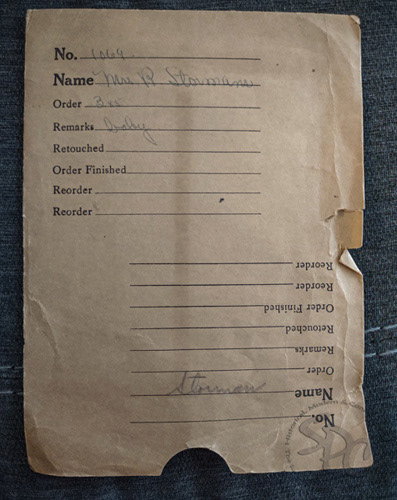 No. 1064
Name Mrs R Stormans
Order 3
Remarks Baby
Retouched
Order Finished
Reorder
Reorder
Reorder
Reorder
Order Finished
Retouched
Remarks
Order
Name Storman
No.
Historical, Modern &